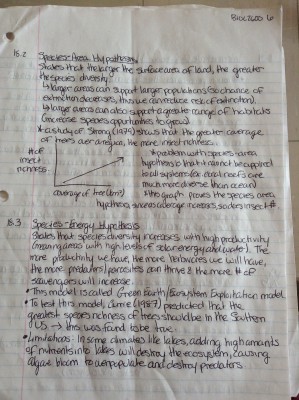 BIOC2600 6
18.2 Species-Area Hypothesis
States that the larger the surface area of land, the greater
the species diversity.
↳ larger areas can support larger populations (so chance of
extinction decreases, thus we can reduce risk of extinction).
↳ larger areas can also support a greater range of habitats
(increase species opportunities to grow).
* a study of Strong (1974) shows that the greater coverage
of trees over a region, the more insect richness.
# of
insect
richness
coverage of tree (km²)
* problem with species-area
hypothesis is that it cannot be applied to
local systems (ex. coral reefs are
much more diverse than ocean)
* this graph proves the species area
hypothesis, since as average increases, so does insect #.
18.3 Species-Energy Hypothesis
States that species diversity increases with high productivity
(meaning areas with high levels of solar energy and water). The
more productivity we have, the more herbivores we will have,
the more predators, parasites can thrive & the more # of
scavengers will increase.
• This model is called Green Earth/Ecosystem Exploitation model.
• To test this model, Currie (1987) predicted that the
greatest species richness of trees should be in the Southern
US → this was found to be true.
• Limitations: In some climates like lakes, adding high amounts
of nutrients into lakes will destroy the ecosystem, causing
algae bloom to and destroy predators